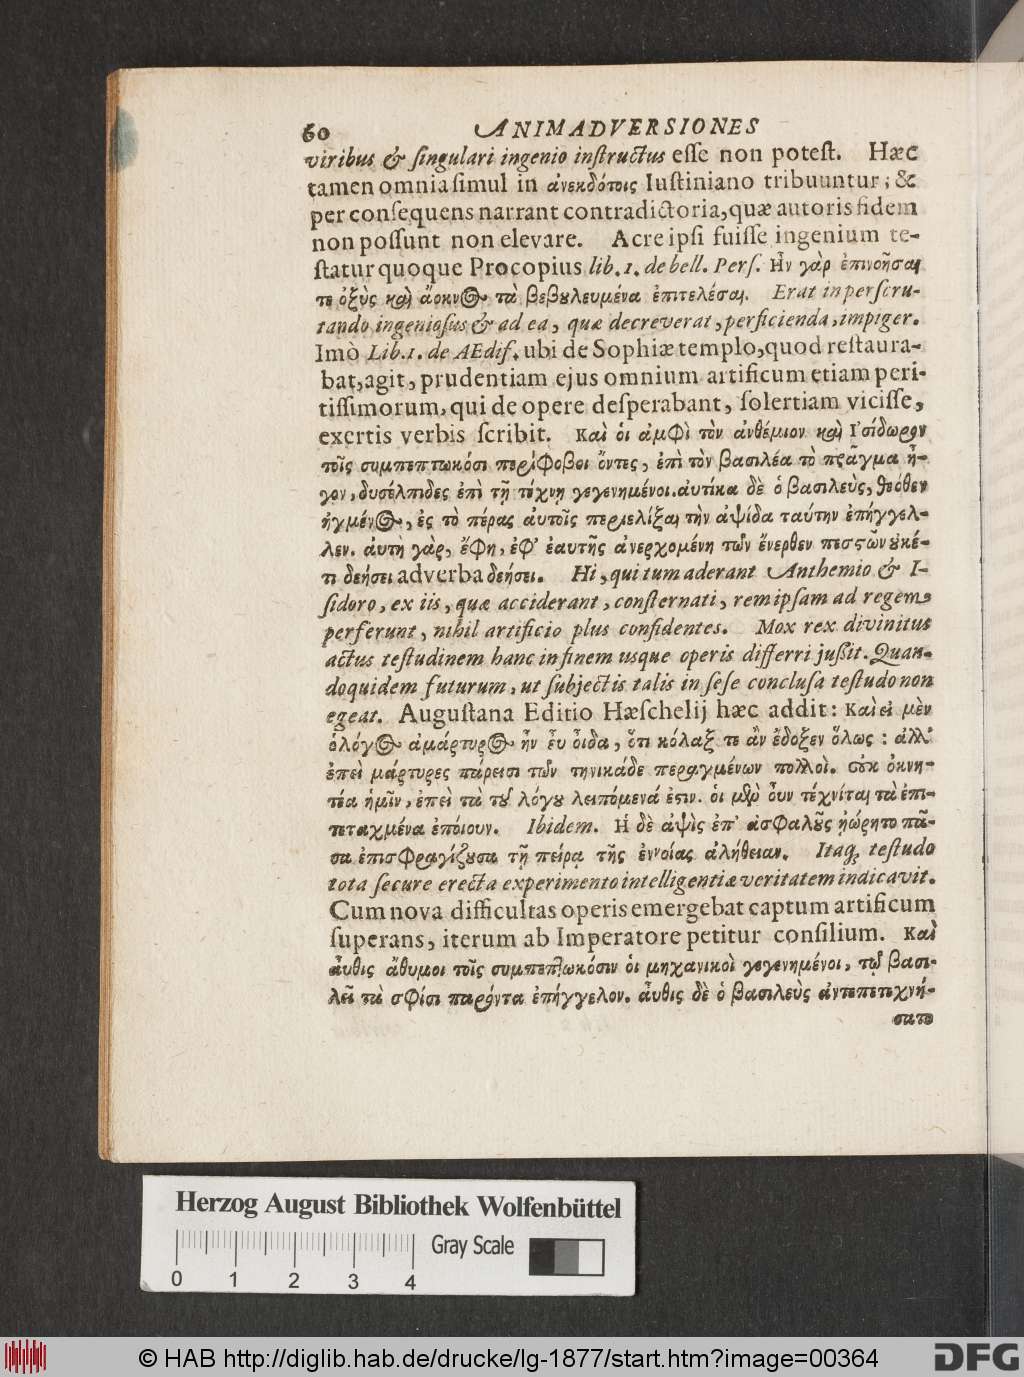 60 ANIMADVERSIONES
viribus & ſingulari ingenio inſtructus eſſe non poteſt. Hæc
tamen omnia ſimul in ἀνεκδότοις Iuſtiniano tribuuntur; &
per conſequens narrant contradictoria, quæ autoris fidem
non poſſunt non elevare. Acre ipſi fuiſſe ingenium te-
ſtatur quoque Procopius lib. 1. de bell. Perſ. Ἦν γὰρ ἐπινοῆσαι
τε ὀξὺς καὶ ἄοκνος τὰ βεβουλευμένα ἐπιτελέσαι. Erat in perſcru-
tando ingenioſus & ad ea, quæ decreverat, perficienda, impiger.
Imò Lib. 1. de AEdif. ubi de Sophiæ templo, quod reſtaura-
bat, agit, prudentiam ejus omnium artificum etiam peri-
tiſſimorum, qui de opere deſperabant, ſolertiam viciſſe,
exertis verbis ſcribit. Καὶ ὁι ἀμφὶ τὸν ἀνθέμιον καὶ Ἰσίδωρον
τοῖς συμπεπτωκόσι περίφοβοι ὄντες, ἐπὶ τὸν βασιλέα τὸ πρᾶγμα ἦ-
γον, δυσέλπιδες ἐπὶ τῇ τέχνῃ γεγενημένοι. ἀυτίκα δὲ ὁ βασιλεὺς, θεόθεν
ἠγμένος, ἐς τὸ πέρας ἀυτοῖς περιελίξαι τὴν ἀψίδα ταύτην ἐπήγγελ-
λεν. ἀυτὴ γὰρ, ἔφη, ἐφ' ἑαυτῆς ἀνερχομένη τῶν ἔνερθεν πεσσῶν ουκέ-
τι δεήσει adverba δεήσει. Hi, qui tum aderant Anthemio & I-
ſidoro, ex iis, quæ acciderant, conſternati, rem ipſam ad regem
perferunt, nihil artificio plus confidentes. Mox rex divinitus
actus teſtudinem hanc in finem usque operis differri jußit. Quan-
doquidem futurum, ut ſubjectis talis in ſeſe concluſa teſtudo non
egeat. Auguſtana Editio Hæſchelij hæc addit: Καὶ εἰ μὲν
ὁ λόγος ἀμάρτυρος ἦν εὐ οἶδα, ὅτι κόλαξ τε ἂν ἔδοξεν ὅλως: ἀλλ'
ἐπεὶ μάρτυρες πάρεισι τῶν τηνικάδε πεπραγμένων πολλοὶ. οὐκ ὀκνη-
τέα ἡμῖν, ἐπεὶ τὰ τοῦ λόγου λειπόμενά ἐστιν. ὁι μὲν οὖν τέχνῖται τὰ ἐπι-
τεταχμένα ἐπόιουν. Ibidem. Ἡ δὲ ἀψὶς ἐπ' ἀσφαλοῦς ἠώρητο πᾶ-
σα ἐπισφραγίζουσα τῇ πείρᾳ τῆς ἐννοίας ἀλήθειαν. Itaq; teſtudo
tota ſecure erecta experimento intelligentiæ veritatem indicavit.
Cum nova difficultas operis emergebat captum artificum
ſuperans, iterum ab Imperatore petitur conſilium. Καὶ
ἀυθις ἄθυμοι τοῖς συμπεπτωκόσιν ὁι μηχανικοὶ γεγενημένοι, τῷ βασι-
λεῖ τὰ σφίσι παρόντα ἐπήγγελον. ἀυθις δὲ ὁ βασιλεὺς ἀντεπετεχνή-
σατο
Herzog August Bibliothek Wolfenbüttel
Gray Scale
0 1 2 3 4
© HAB http://diglib.hab.de/drucke/lg-1877/start.htm?image=00364
DFG